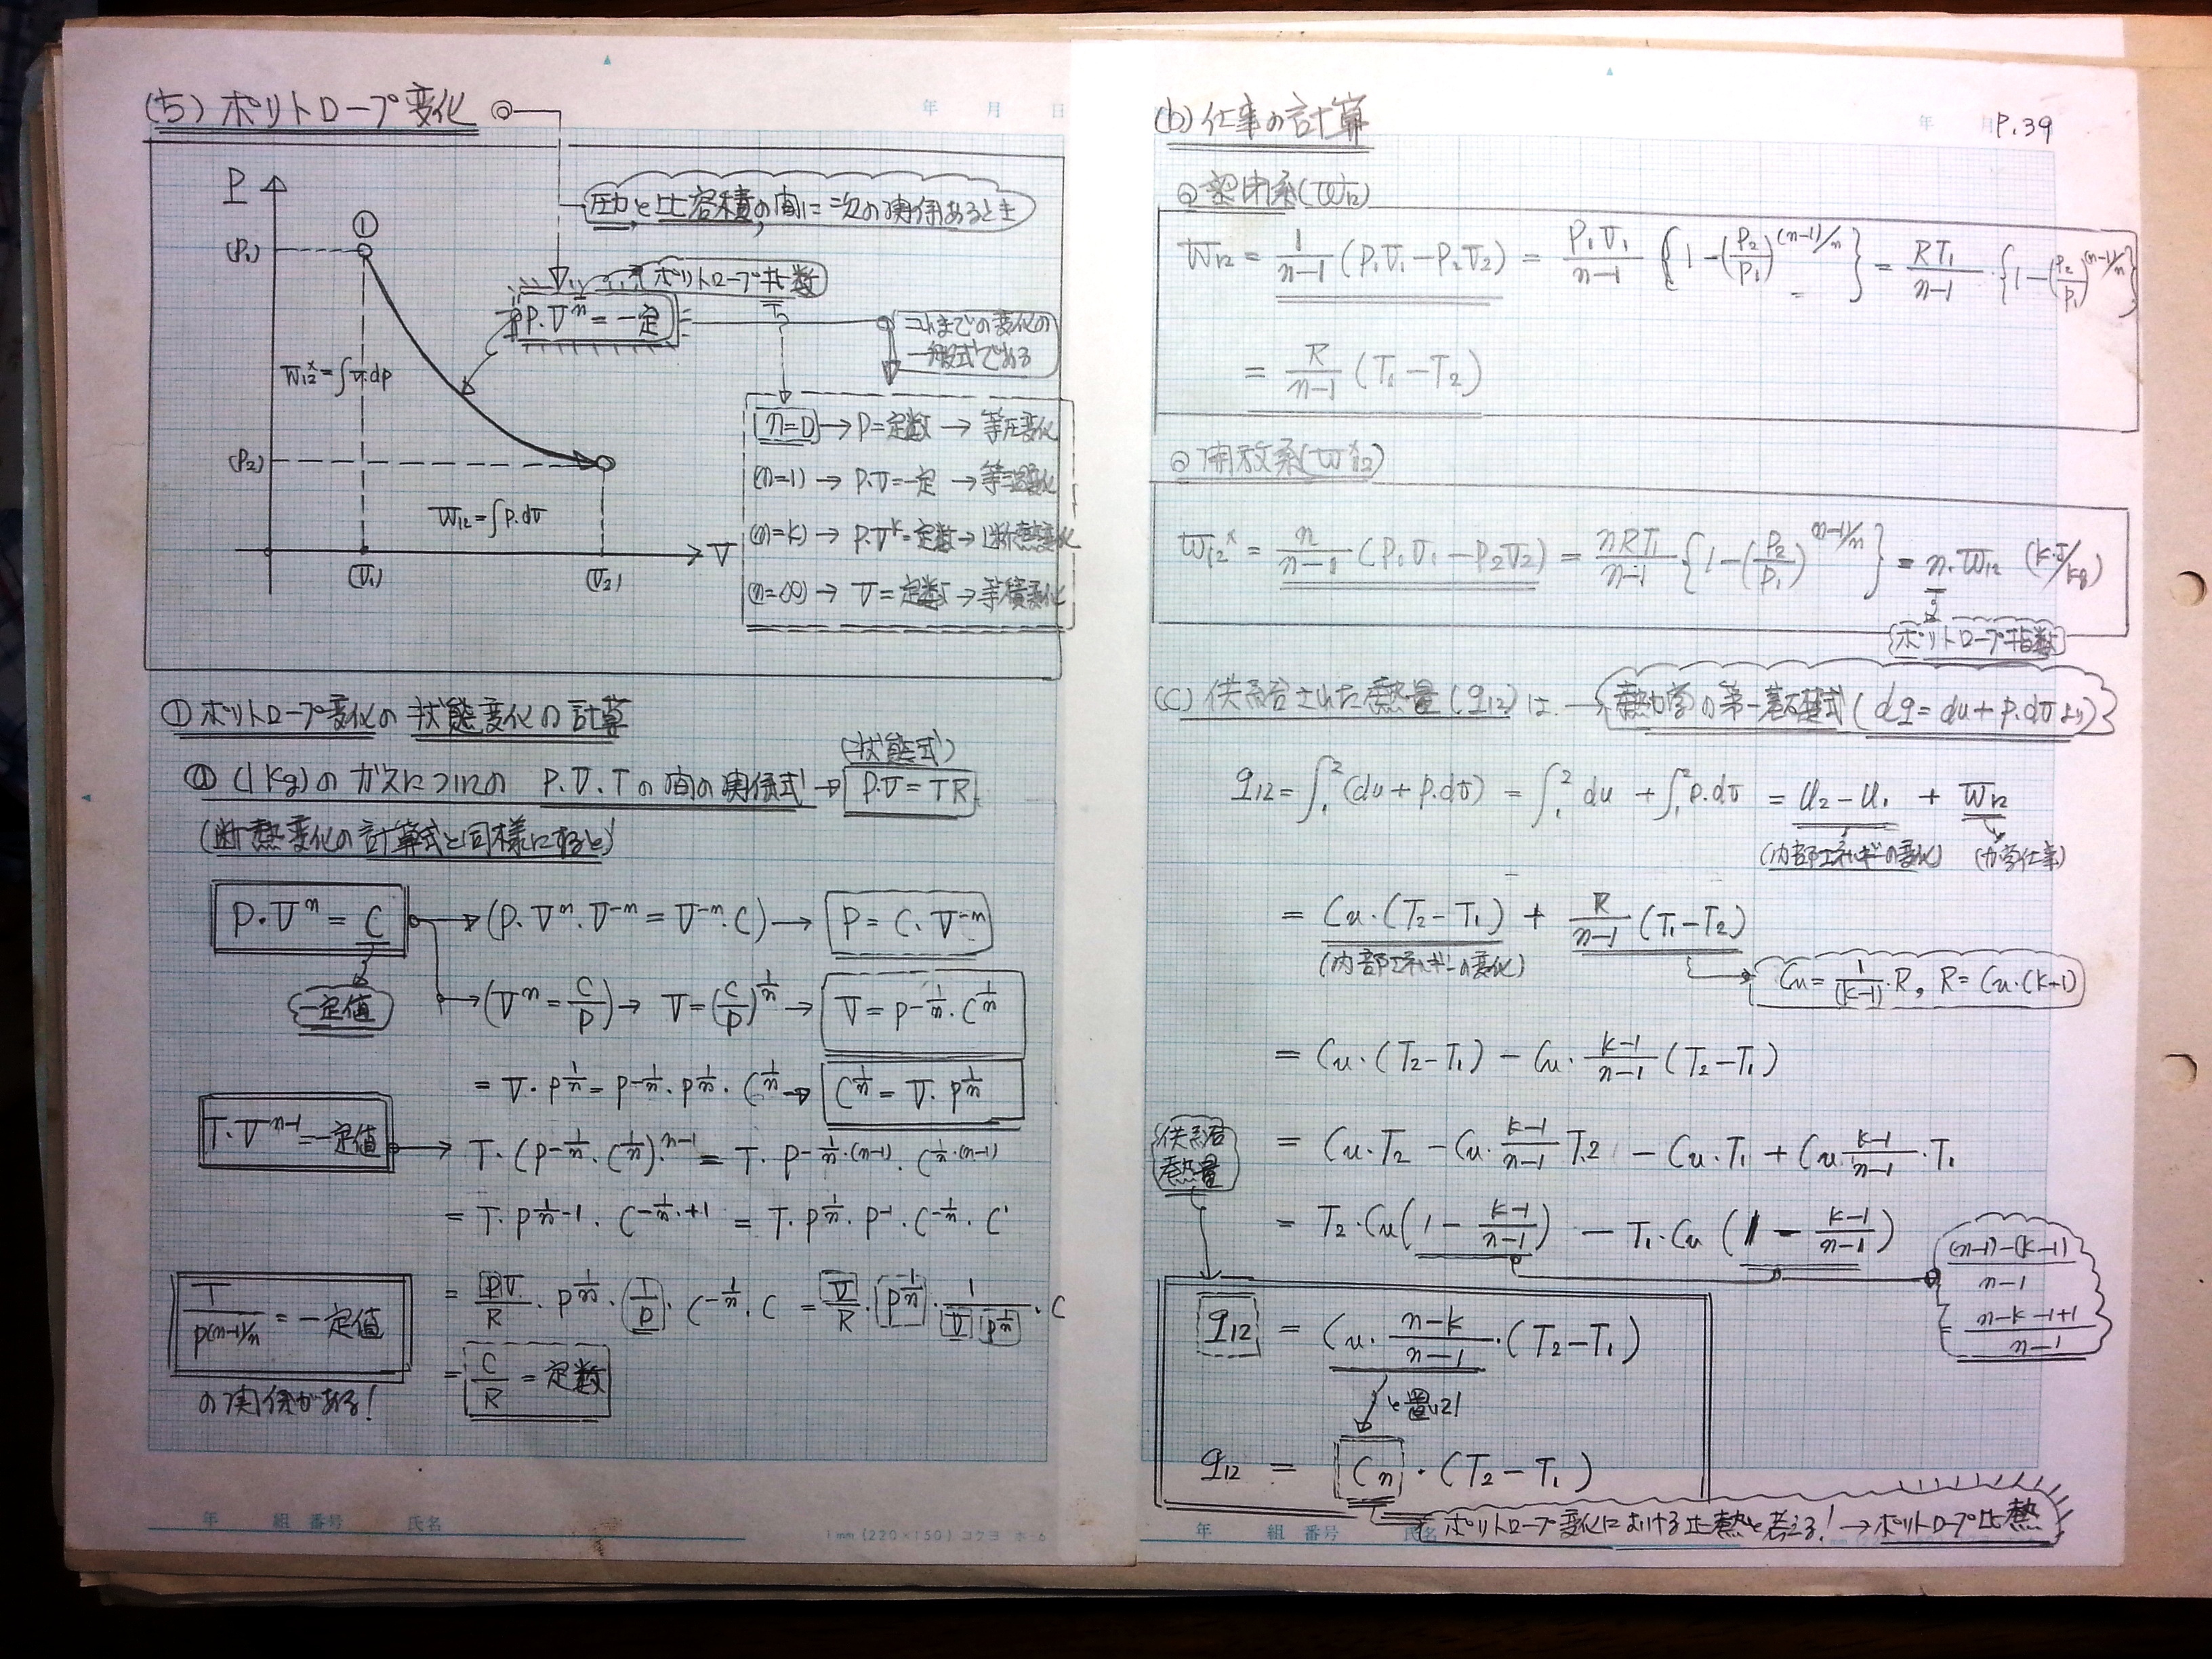 (5) ポリトロープ変化
年 月 日
圧力と比容積の間に次の関係あるとき
ポリトロープ指数
P・V^n = 一定
これまでの変化の
一般式である
P
①
(P1)
W12^x = ∫v.dp
(P2)
W12 = ∫P.dv
(V1)
(V2)
V
n=0 → P=定数 → 等圧変化
(n=1) → P.V=一定 → 等温変化
(n=k) → P.V^k=定数 → 断熱変化
(n=∞) → V=定数 → 等積変化
① ポリトロープ変化の状態変化の計算
(状態式)
ⓐ (1kg)のガスについての P.V.Tの間の関係式 → P.V=TR
(断熱変化の計算式と同様にすると)
P・V^n = C → (P.V^n.V^-n = V^-n.C) → P = C.V^-n
一定値
(V^n = C/P) → V=(C/P)^1/n → V=P^-1/n・C^1/n
= V・P^1/n = P^-1/n・P^1/n・C^1/n → C^1/n = V・P^1/n
T・V^n-1=一定値 → T・(P^-1/n・C^1/n)^n-1 = T・P^-1/n・(n-1)・C^1/n・(n-1)
= T・P^1/n-1・C^-1/n・+1 = T・P^1/n・P^-1・C^-1/n・C^1
T/P^(n-1)/n = 一定値
= PV/R・P^1/n・(1/P)・C^-1/n・C = V/R・P^1/n・1/(V P^1/n)・C
= C/R = 定数
の関係がある!
年 組 番号 氏名
1mm(220×150) コクヨ ホ-6
(b) 仕事の計算
年 月 P.39
◎密閉系(W12)
W12 = 1/n-1 (P1V1-P2V2) = P1V1/n-1 {1-(P2/P1)^(n-1)/n} = RT1/n-1・{1-(P2/P1)^(n-1/n)}
= R/n-1 (T1-T2)
◎開放系(W^x12)
W12^x = n/n-1 (P1V1-P2V2) = nRT1/n-1 {1-(P2/P1)^(n-1/n)} = n.W12 (kJ/kg)
ポリトロープ指数
(c) 供給された熱量(q12)は → 熱力学の第一基礎式(dq=du+p.dvより)
q12 = ∫1^2(du+p.dv) = ∫1^2 du + ∫1^2 p.dv = U2-U1 + W12
(内部エネルギーの変化) (力学仕事)
= Cu・(T2-T1) + R/n-1 (T1-T2)
(内部エネルギーの変化)
Cu=1/(k-1)・R, R=Cu.(k-1)
= Cu・(T2-T1) - Cu・k-1/n-1 (T2-T1)
供給
熱量
= Cu.T2 - Cu・k-1/n-1 T.2 - Cu.T1 + Cu k-1/n-1・T1
= T2・Cu(1 - k-1/n-1) - T1・Cu (1 - k-1/n-1)
(n-1)-(k-1)/n-1
= n-k-1+1/n-1
q12 = Cu・n-k/n-1・(T2-T1)
と置いて
q12 = Cn・(T2-T1)
ポリトロープ変化における比熱と考える! → ポリトロープ比熱
年 組 番号 氏名